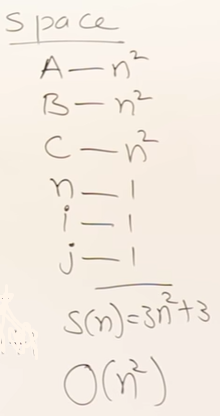 Space
A — n²
B — n²
C — n²
n — 1
i — 1
j — 1
S(n) = 3n² + 3
O(n²)